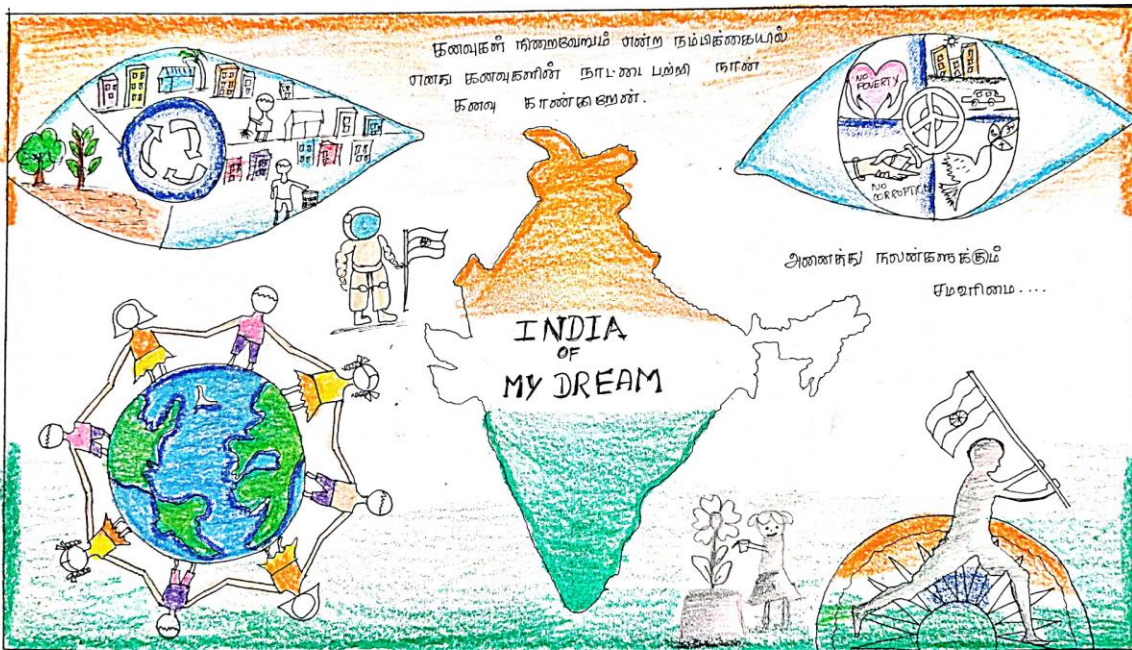 கனவுகள் நிறைவேறும் என்ற நம்பிக்கையில்
எனது கனவுகளின் நாட்டை பற்றி நான்
கனவு காண்கிறேன்.
NO
POVERTY
NO
CORRUPTION
அனைத்து நலன்களுக்கும்
சமஉரிமை....
INDIA
OF
MY DREAM